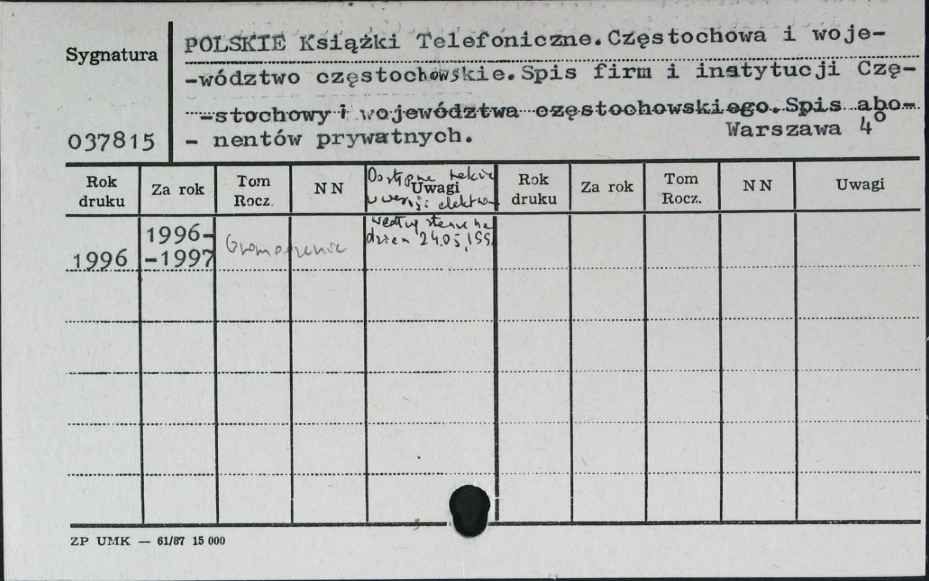 Sygnatura
037815
POLSKIE Książki Telefoniczne. Częstochowa i woje-
-wództwo częstochowskie. Spis firm i instytucji Czę-
-stochowy i województwa częstochowskiego. Spis abo-
- nentów prywatnych.
Warszawa 4⁰
Rok druku
Za rok
Tom Rocz.
NN
Uwagi
Dostępne także
w wersji elektron
Rok druku
Za rok
Tom Rocz.
NN
Uwagi
1996
1996-
-1997
według stanu na
dzień 24.05.
ZP UMK — 61/87 15 000